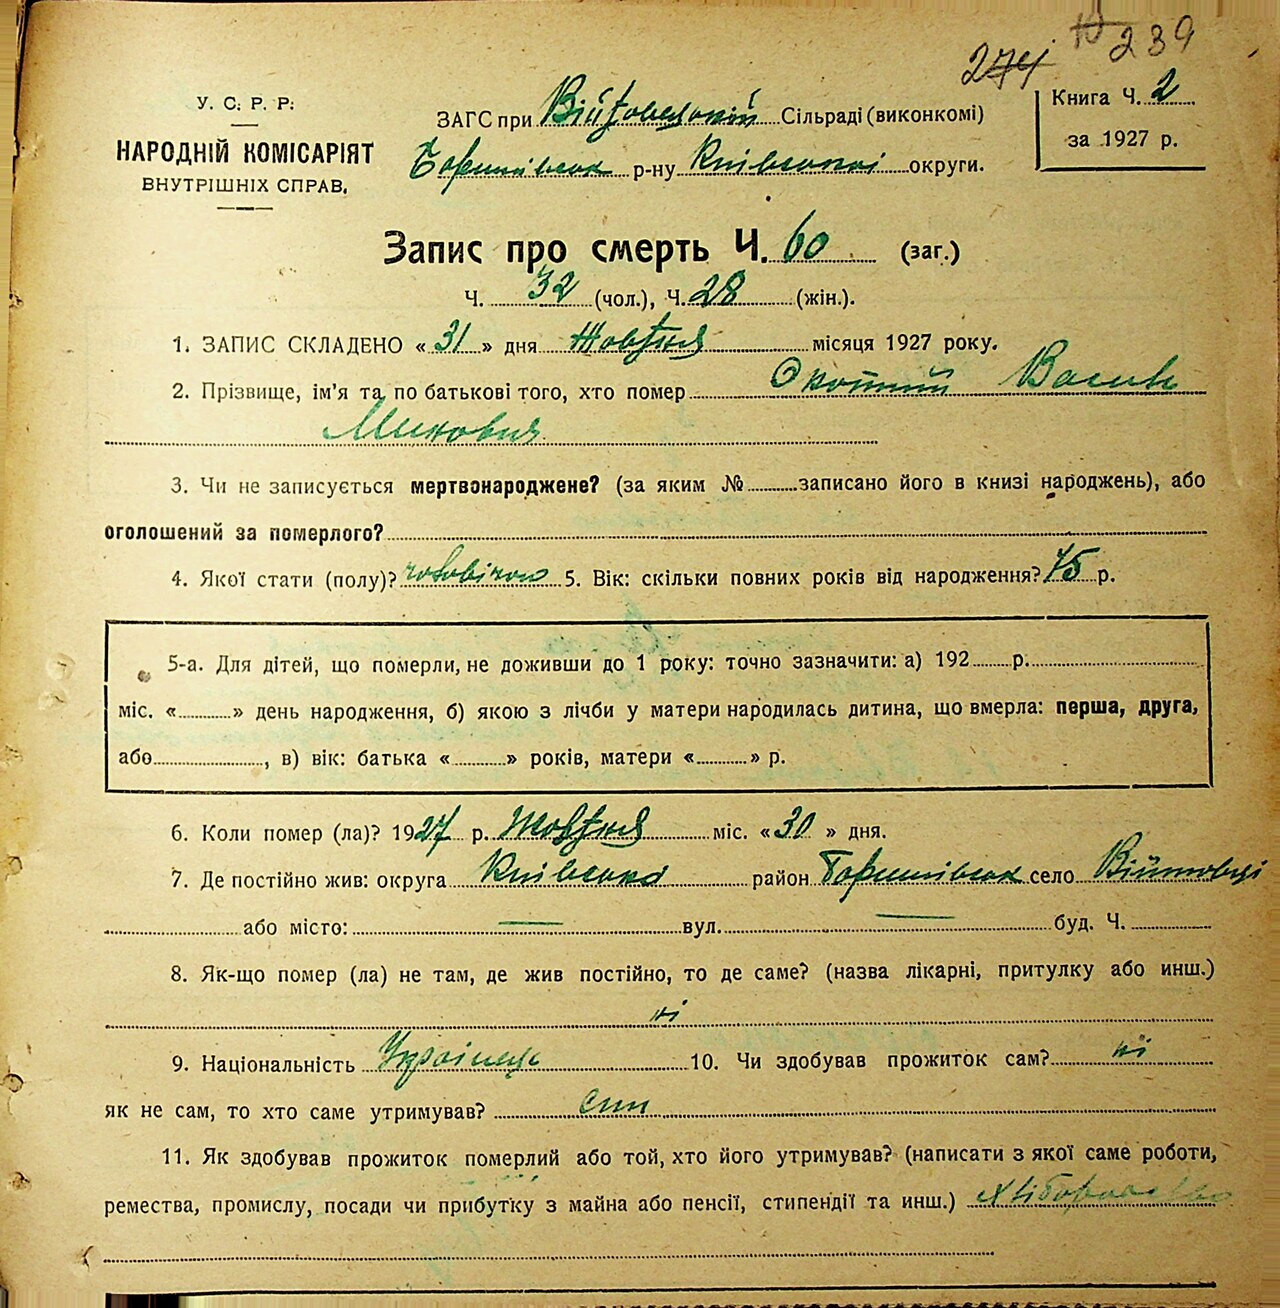 274 10 239
У. С. Р. Р.
НАРОДНІЙ КОМІСАРІЯТ
ВНУТРІШНІХ СПРАВ.
ЗАГС при Війтовецькій Сільраді (виконкомі)
Баришівськ р-ну Київської округи.
Книга Ч. 2
за 1927 р.
Запис про смерть Ч. 60 (заг.)
Ч. 32 (чол.), Ч. 28 (жін.).
1. ЗАПИС СКЛАДЕНО « 31 » дня Жовтня місяця 1927 року.
2. Прізвище, ім'я та по батькові того, хто помер Василь
3. Чи не записується мертвонароджене? (за яким № записано його в книзі народжень), або
оголошений за померлого?
4. Якої стати (полу)? чоловічої 5. Вік: скільки повних років від народження? 75 р.
5-а. Для дітей, що померли, не доживши до 1 року: точно зазначити: а) 192 р.
міс. « » день народження, б) якою з лічби у матери народилась дитина, що вмерла: перша, друга,
або , в) вік: батька « » років, матери « » р.
6. Коли помер (ла)? 1927 р. Жовтня міс. « 30 » дня.
7. Де постійно жив: округа Київська район Баришівськ село Війтовці
або місто: — вул. — буд. Ч.
8. Як-що помер (ла) не там, де жив постійно, то де саме? (назва лікарні, притулку або инш.)
ні
9. Національність Українець 10. Чи здобував прожиток сам? ні
як не сам, то хто саме утримував? син
11. Як здобував прожиток померлий або той, хто його утримував? (написати з якої саме роботи,
ремества, промислу, посади чи прибутку з майна або пенсії, стипендії та инш.) Хліборобство